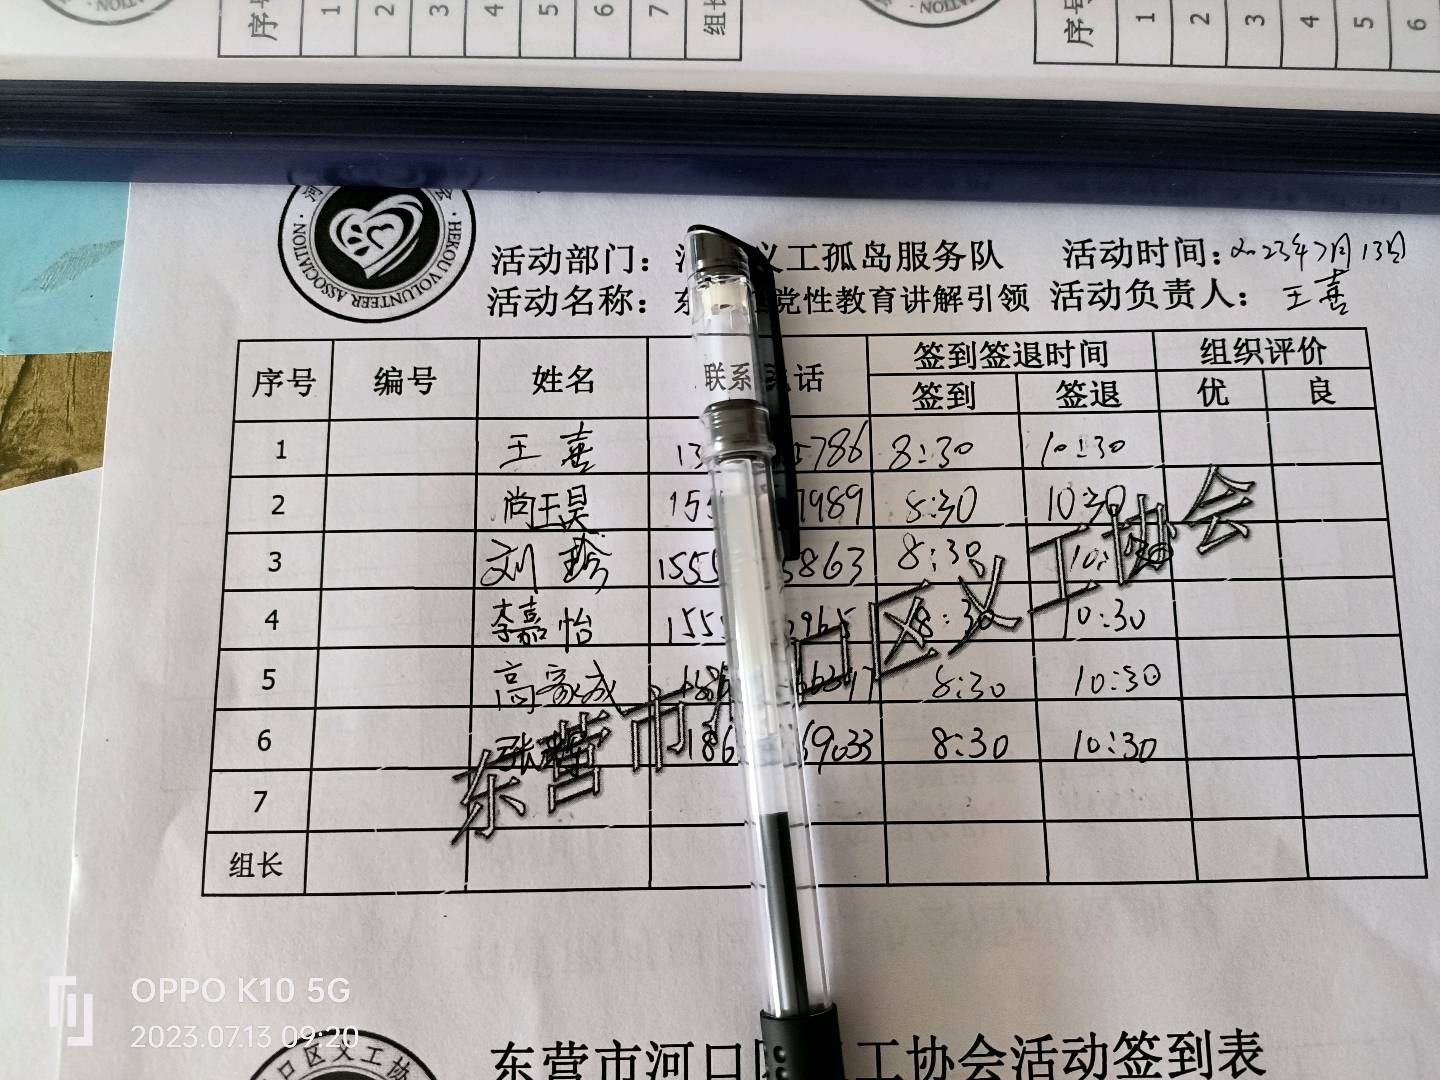 序号 1 2 3 4 5 6 7 组长
序号 1 2 3 4 5 6
HEKOU VOLUNTEER ASSOCIATION
活动部门： 义工孤岛服务队 活动时间：2023年7月13日
活动名称：东 党性教育讲解引领 活动负责人：王喜
序号 编号 姓名 联系 话 签到签退时间 组织评价
签到 签退 优 良
1 王喜 13 5786 8:30 10:30
2 尚玉昊 155 1989 8:30 10:30
3 刘珍 1555 5863 8:30 10:30
4 李嘉怡 155 2965 8:30 10:30
5 高家成 8:30 10:30
6 张 186 69033 8:30 10:30
7
组长
东营市 口区义工协会
OPPO K10 5G
2023.07.13 09:20
口区义工协
东营市河口 工协会活动签到表